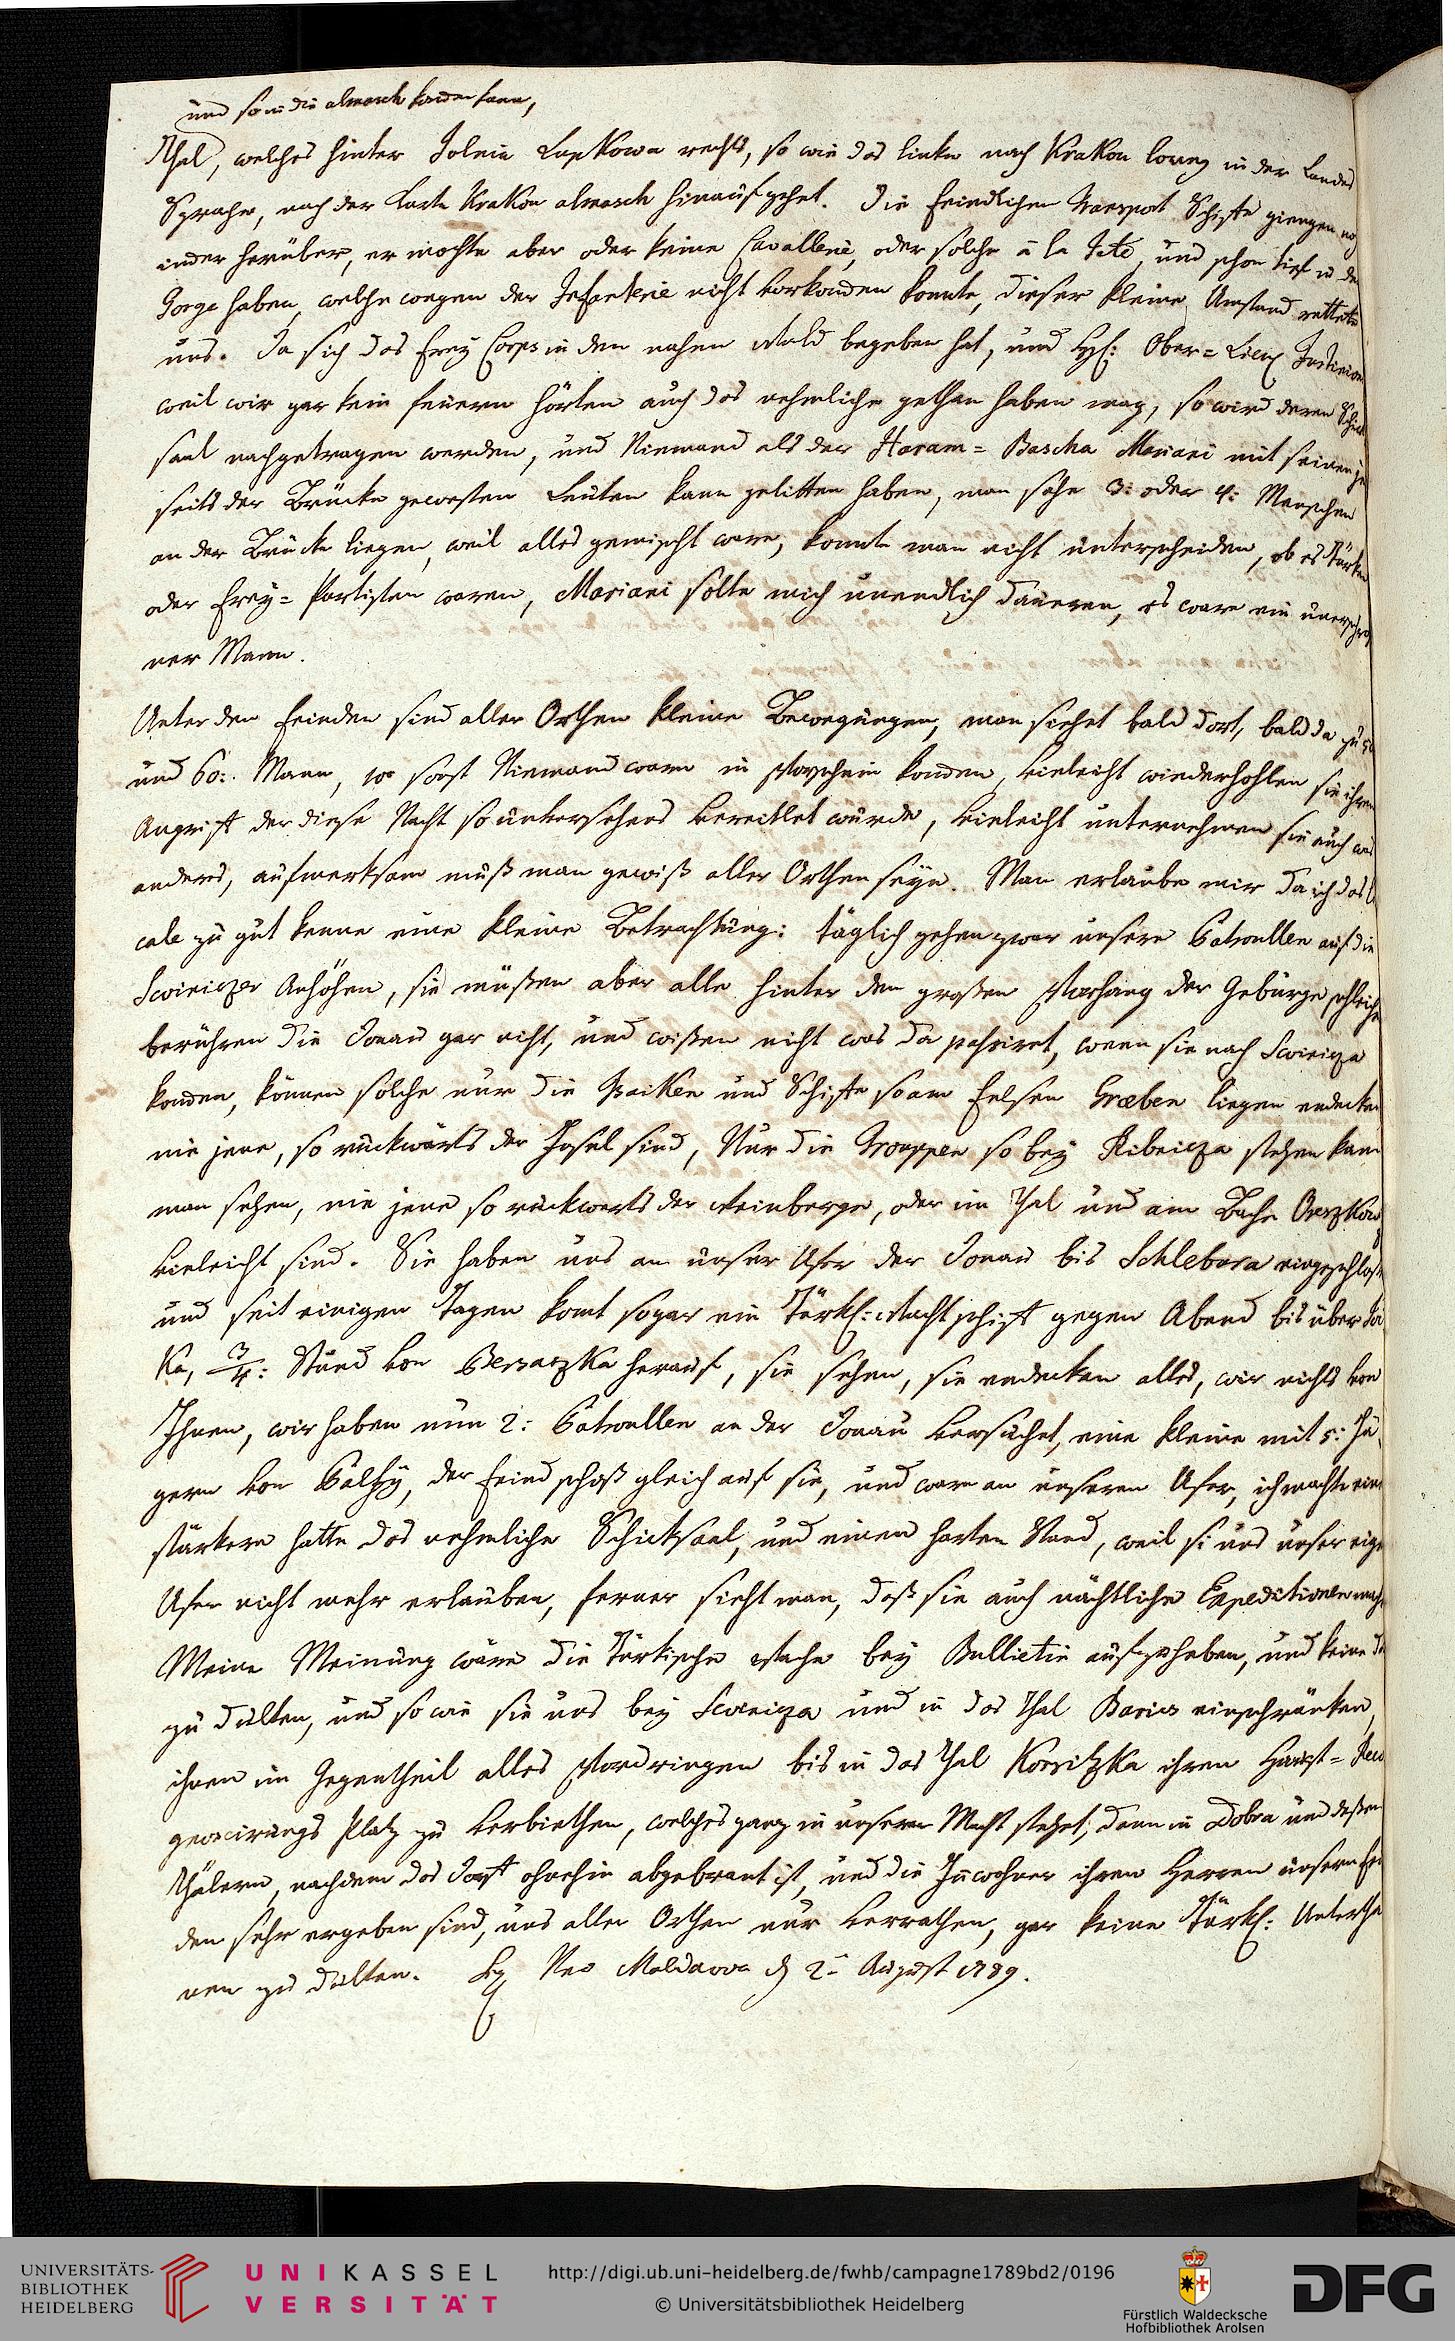 und so in die almasch kommen kann,
Thal, welches hinter Dolnia Lupkowa rechts, so wie das linke nach Krakou loncz in der Landes
Sprache, nach der Karte Krakou almasch hinaufgehet. Die feindlichen Transport Schiffe giengen
inder herüber, er mochte aber oder keine Cavallerie, oder solche à la Tete, und schon tief in der
Gorge haben, welche wegen der Infanterie nicht vorkommen konnte, dieser kleine Umstand rettete
uns. Da sich das Frey Corps in den nahen Wald begeben hat, und H: Ober=Lieut
weil wir gar kein feuern hörten auch das nehmliche gethan haben mag, so wird deren Schick
saal nachgetragen werden, und Niemand als der Haram=Bascha Mariani mit seinen je
seits der Brücke gewesten Leuten kann gelitten haben, man sahe 3: oder 4: Menschen
an der Brücke liegen, weil alles gemischt ware, konnte man nicht unterscheiden, ob es Türken
oder Frey=Partisten waren, Mariani solte mich unendlich dauren, es ware ein unerschrok
ner Mann.
Unter den Feinden sind aller Orthen kleine Bewegungen, man siehet bald dort, bald da zu 50
und 60: Mann, wo sonst Niemand ware in Vorschein komen, vieleicht wiederhohlen sie ihren
Angriff der diese Nacht so unversehens vereitlet wurde, vieleicht unternehmen sie auch was
anders, aufmerksam muß man gewiß aller Orthen seyn. Man erlaube mir da ich das lo
cale zu gut kenne eine kleine Betrachtung: täglich gehen zwar unsere Patroullen auf die
Swiniczer Anhöhen, sie müßen aber alle hinter den großen Vorhang der Gebürge schleichen
berühren die Donau gar nicht, und wißen nicht was da pahsiret, wenn sie nach Swinicza
komen, können solche nur die Tschaiken und Schiffe so am Felsen Græben liegen endecken
nie jene, so rückwärts der Insel sind, Nur die Trouppen so bey Ribnicza stehen kann
man sehen, nie jene so rückwerts der Weinberge, oder im Thal und am Bache
vieleicht sind. Sie haben uns an unser Ufer der Donau bis Schlebura eingeschloßen
und seit einigen Tagen komt sogar ein Türk: Wachtschiff gegen Abend bis über
Ka, 3/4: Stund von Berzaszka herauf, sie sehen, sie endecken alles, wir nichts von
Ihnen, wir haben nun 2: Patroullen an der Donau versuchet, eine kleine mit 5: Jä
gern von Palfÿ, der Feind schoß gleich auf sie, und ware an unseren Ufer, ich machte eine
stärkere hatte das nehmliche Schicksaal, und einen harten Stand, weil si uns unser eigen
Ufer nicht mehr erlauben, ferner sieht man, daß sie auch nächtliche Expeditionen mach
Meine Meinung wäre die Türkische Wache bey Bullietin aufzuheben, und keine da
zu dulten, und so wie sie uns bey Swinicza und in das Thal einschränken,
ihnen im Gegentheil alles Vordringen bis in das Thal Kossitzka ihren Haupt=Reco
gnoscirungs Platz zu verbiethen, welches ganz in unserer Macht stehet; dann in Dobra und deßen
Thälern, nachdem das Dorff ohnehin abgebrant ist, und die Innwohner ihren Herren unsern Fei
den sehr ergeben sind, uns aller Orthen nur verrathen, gar keine Türk: Untertha
nen zu dulten. Neo Moldawa d 2 August 1789.
UNIVERSITÄTS-
BIBLIOTHEK
HEIDELBERG
UNIKASSEL
VERSITÄT
http://digi.ub.uni-heidelberg.de/fwhb/campagne1789bd2/0196
© Universitätsbibliothek Heidelberg
Fürstlich Waldecksche
Hofbibliothek Arolsen
DFG